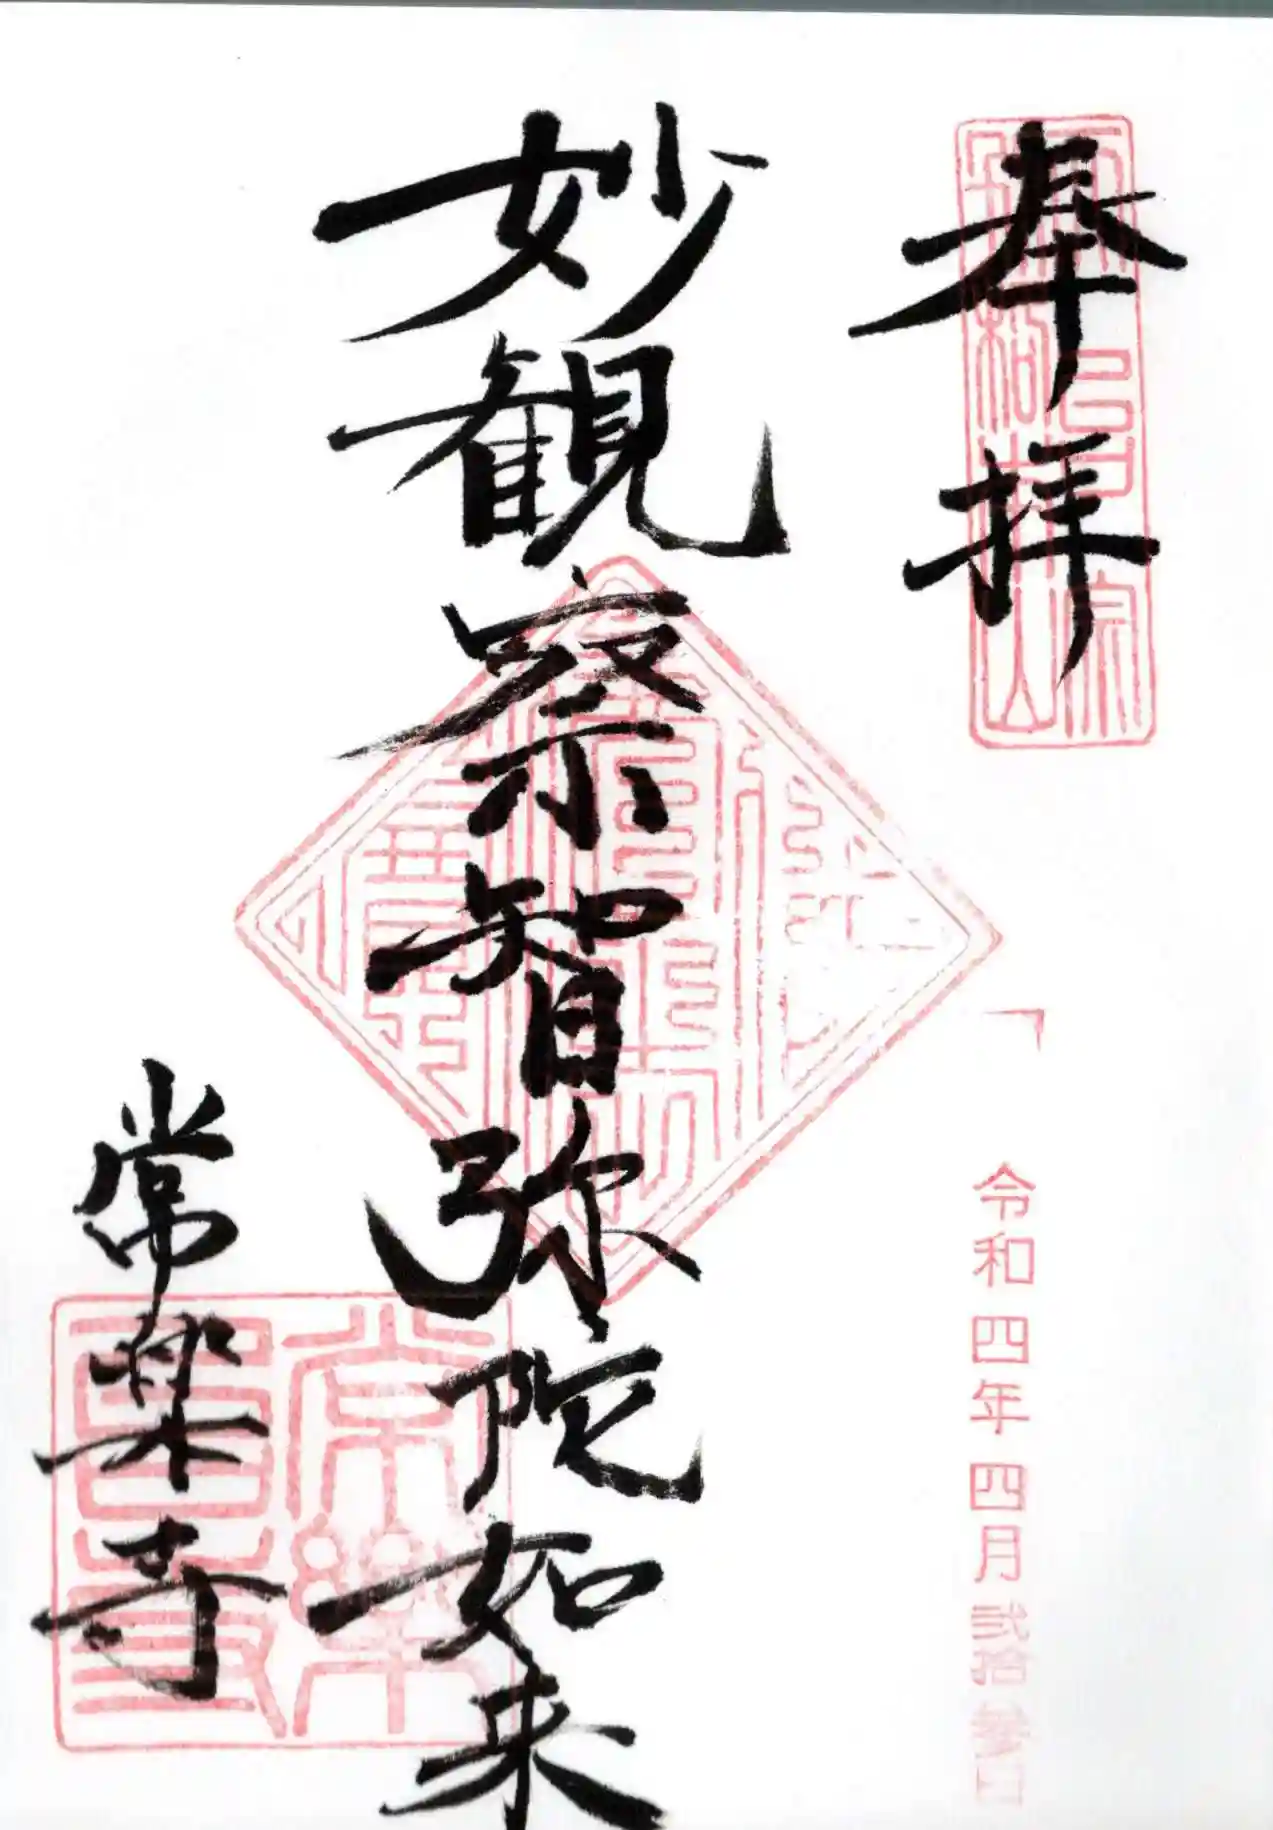 奉拝
令和四年四月弐拾参日
妙観察智弥陀如来
常楽寺